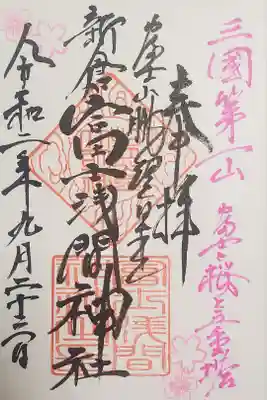 三國第一山 富士桜と五重塔
奉拝
富士山眺望日本一
新倉富士浅間神社
令和二年九月二十二日